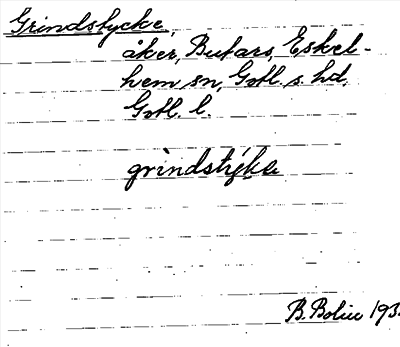 Grindstycke,
åker, Butars, Eskel-
hem sn, Gotl. s. hd.
Gotl. l.
grindstyka
B. Bolin 193